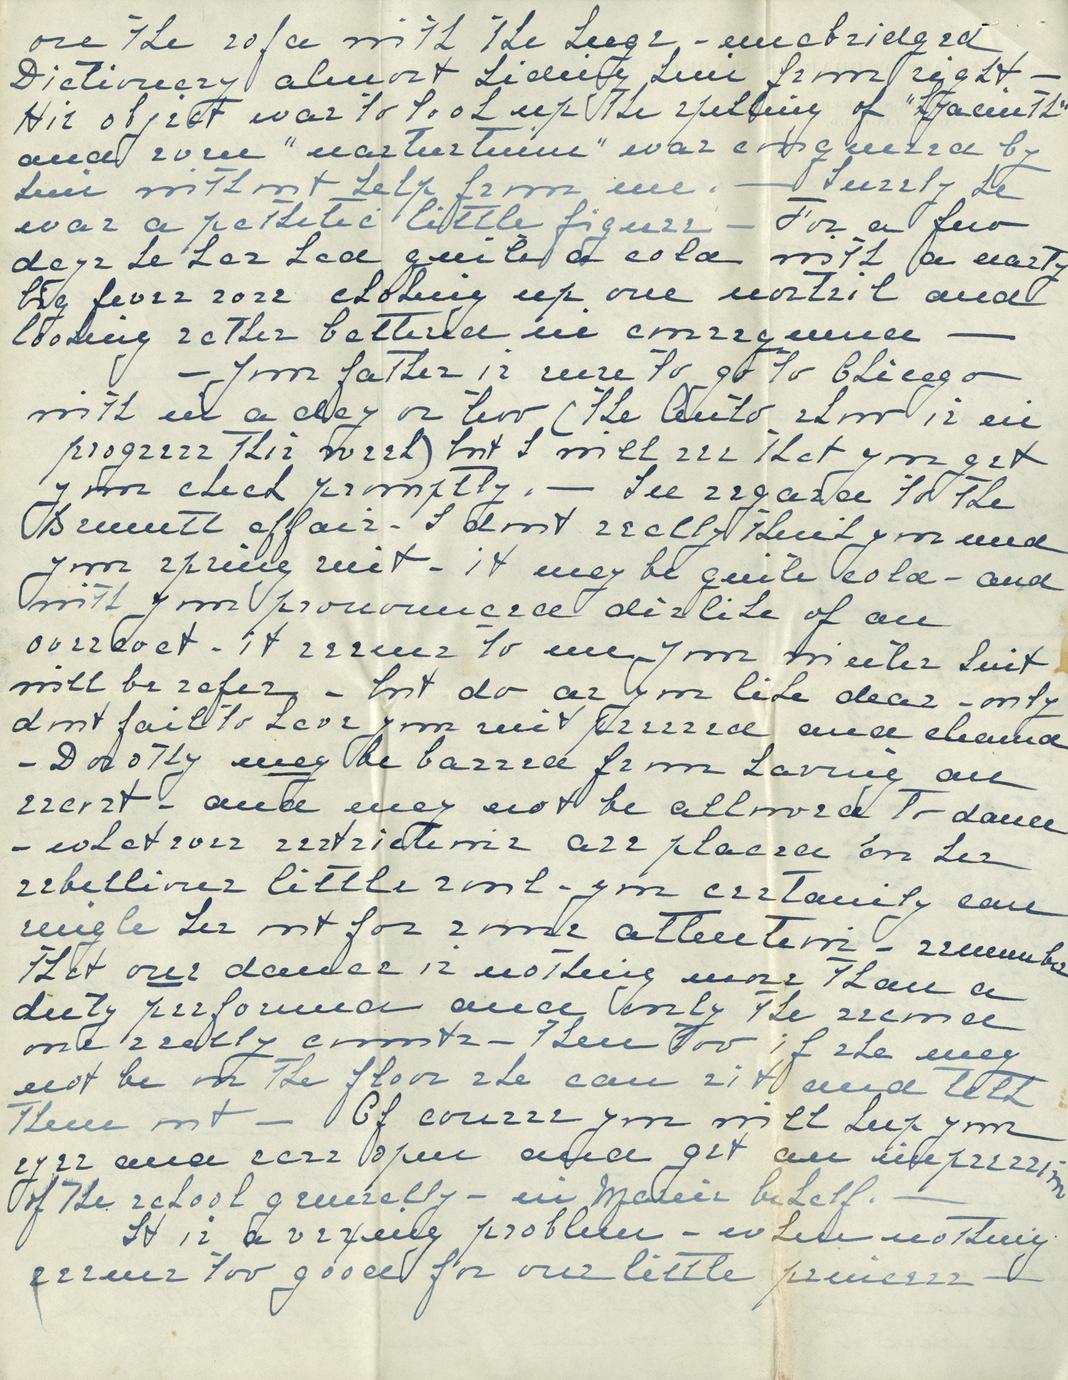 on the sofa with the huge - unabridged
Dictionary almost hiding him from sight -
His object was to look up the spelling of "Hyacinth"
and even "nasturtium" was conquered by
him without help from me. - Surely he
was a pathetic little figure - For a few
days he has had quite a cold with a nasty
big fever sore closing up one nostril and
looking rather battered in consequence -
- Your father is sure to go to Chicago
with in a day or two (the Auto show is in
progress this week) but I will see that you get
your check promptly. - In regard to the
Bennett affair - I don't really think you need
your spring suit - it may be quite cold - and
with your pronounced dislike of an
overcoat - it seems to me your winter suit
will be safer - but do as you like dear - only
don't fail to have your suit pressed and cleaned
- Dorothy may be barred from having an
escort - and may not be allowed to dance
- whatever restrictions are placed on her
rebellious little soul - you certainly can
single her out for some attention - remember
that one dance is nothing more than a
duty performed and only the second
one really counts - Then too if she may
not be on the floor she can sit and tell
them out - Of course you will keep your
eyes and ears open and get an impression
of the school generally - in Marie's behalf. -
It is a vexing problem - when nothing
seems too good for our little princess -